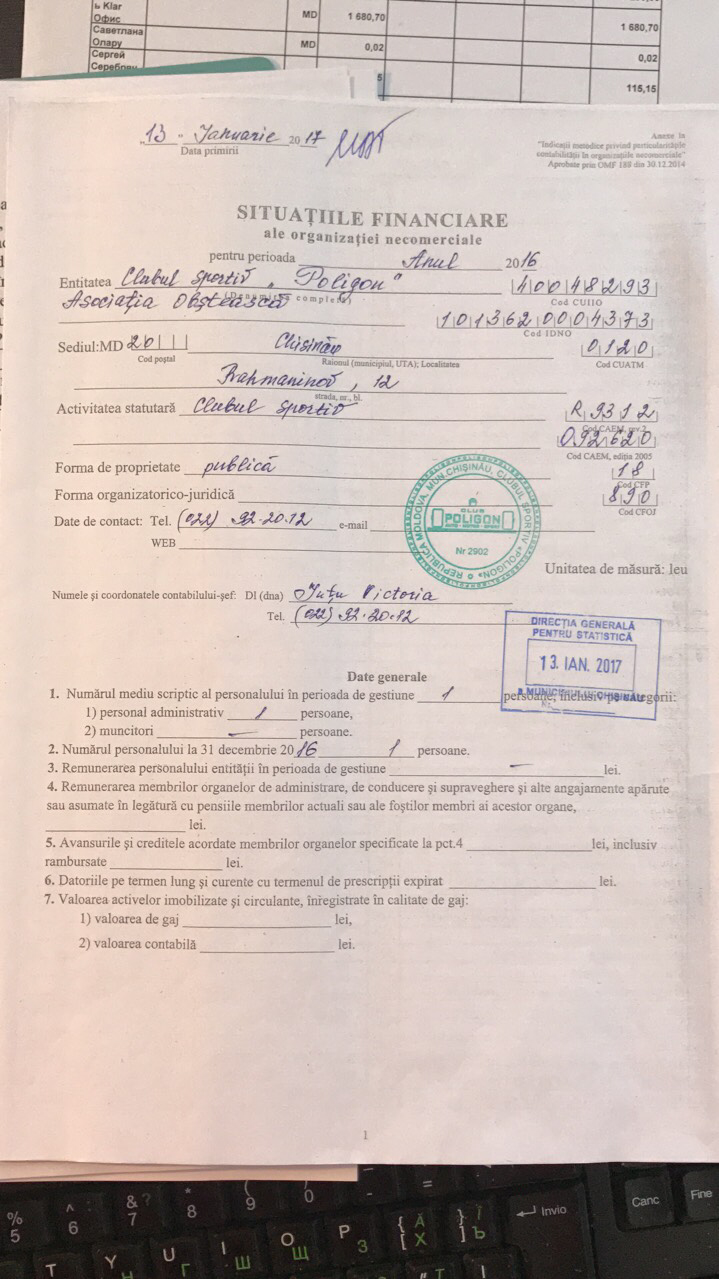 ь Klar
Офис MD 1 680,70 1 680,70
Саветлана
Опару MD 0,02 0,02
Сергей
5 115,15
"13" Ianuarie 2017
Data primirii
Anexe la
"Indicații metodice privind particularitățile
contabilității în organizațiile necomerciale"
Aprobate prin OMF 188 din 30.12.2014
SITUAȚIILE FINANCIARE
ale organizației necomerciale
pentru perioada Anul 2016
Entitatea Clubul sportiv „Poligon" 40048293
(Denumirea completă) Cod CUIIO
Asociația Obștească
1013620004373
Cod IDNO
Sediul:MD 20 Chișinău 0120
Cod poștal Raionul (municipiul, UTA); Localitatea Cod CUATM
Rahmaninov, 12
strada, nr., bl.
Activitatea statutară Clubul sportiv R9312
Cod CAEM, rev.2
092620
Cod CAEM, ediția 2005
Forma de proprietate publică 18
Cod CFP
Forma organizatorico-juridică 890
Cod CFOJ
Date de contact: Tel. (022) 92-20.12 e-mail
WEB
REPUBLICA MOLDOVA, MUN.CHIȘINĂU, CLUBUL SPORTIV «POLIGON»
CLUB
POLIGON
Nr 2902
Unitatea de măsură: leu
Numele și coordonatele contabilului-șef: Dl (dna) Victoria
Tel. (022) 92-20.12
DIRECȚIA GENERALĂ
PENTRU STATISTICĂ
13. IAN. 2017
A MUNICIPIULUI CHIȘINĂU
Date generale
1. Numărul mediu scriptic al personalului în perioada de gestiune 1 persoane, inclusiv pe categorii:
1) personal administrativ 1 persoane,
2) muncitori — persoane.
2. Numărul personalului la 31 decembrie 2016 1 persoane.
3. Remunerarea personalului entității în perioada de gestiune — lei.
4. Remunerarea membrilor organelor de administrare, de conducere și supraveghere și alte angajamente apărute
sau asumate în legătură cu pensiile membrilor actuali sau ale foștilor membri ai acestor organe,
lei.
5. Avansurile și creditele acordate membrilor organelor specificate la pct.4 lei, inclusiv
rambursate lei.
6. Datoriile pe termen lung și curente cu termenul de prescripții expirat lei.
7. Valoarea activelor imobilizate și circulante, înregistrate în calitate de gaj:
1) valoarea de gaj lei,
2) valoarea contabilă lei.
1
% 5 ^ 6 & ? 7 * 8 ( 9 ) 0 - =
Invio Canc Fine
T Y U Г I Ш O Щ P З { [ Х } ] Ъ